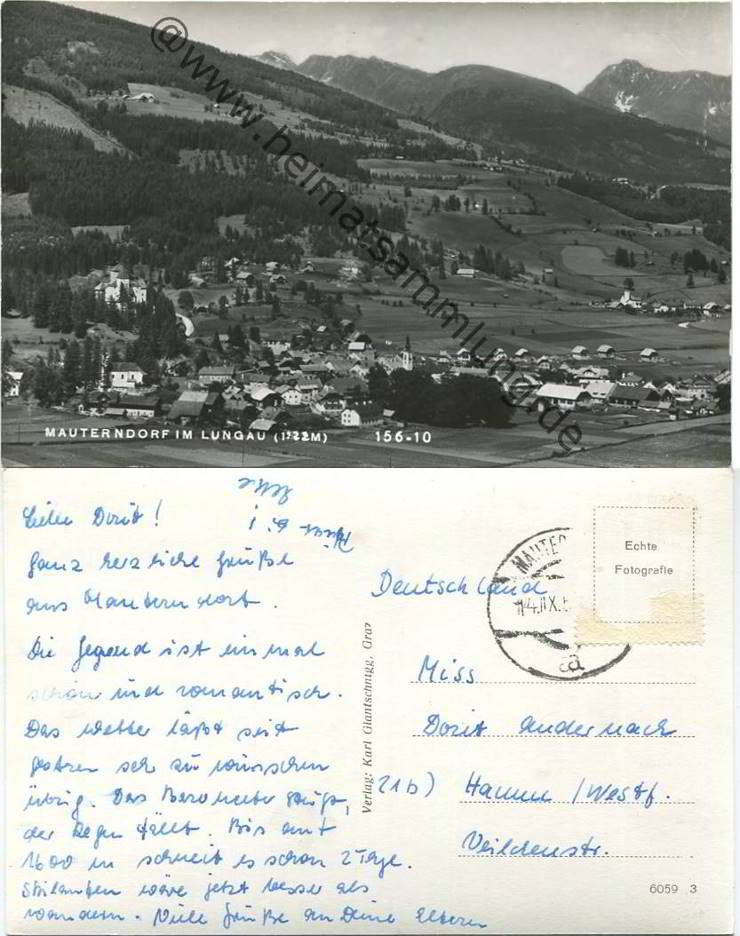 @www.heimatsammlung.de
MAUTERNDORF IM LUNGAU (1122M) 156-10
Liebe Dorit!
ganz herzliche Grüße
aus Mauterndorf.
Die Gegend ist einmal
schön und romantisch.
Das Wetter läßt seit
gestern sehr zu wünschen
übrig. Das Barometer steigt,
der Regen fällt. Bis auf
1600 m schneit es schon 2 Tage.
Skilaufen wäre jetzt besser als
wandern. Viele Grüße an Deine Eltern
Verlag: Karl Glantschnigg, Graz
MAUTE
Echte
Fotografie
Deutschland
Miss
Dorit Andernach
(21b) Hamm / Westf.
Veilchenstr.
6059 3